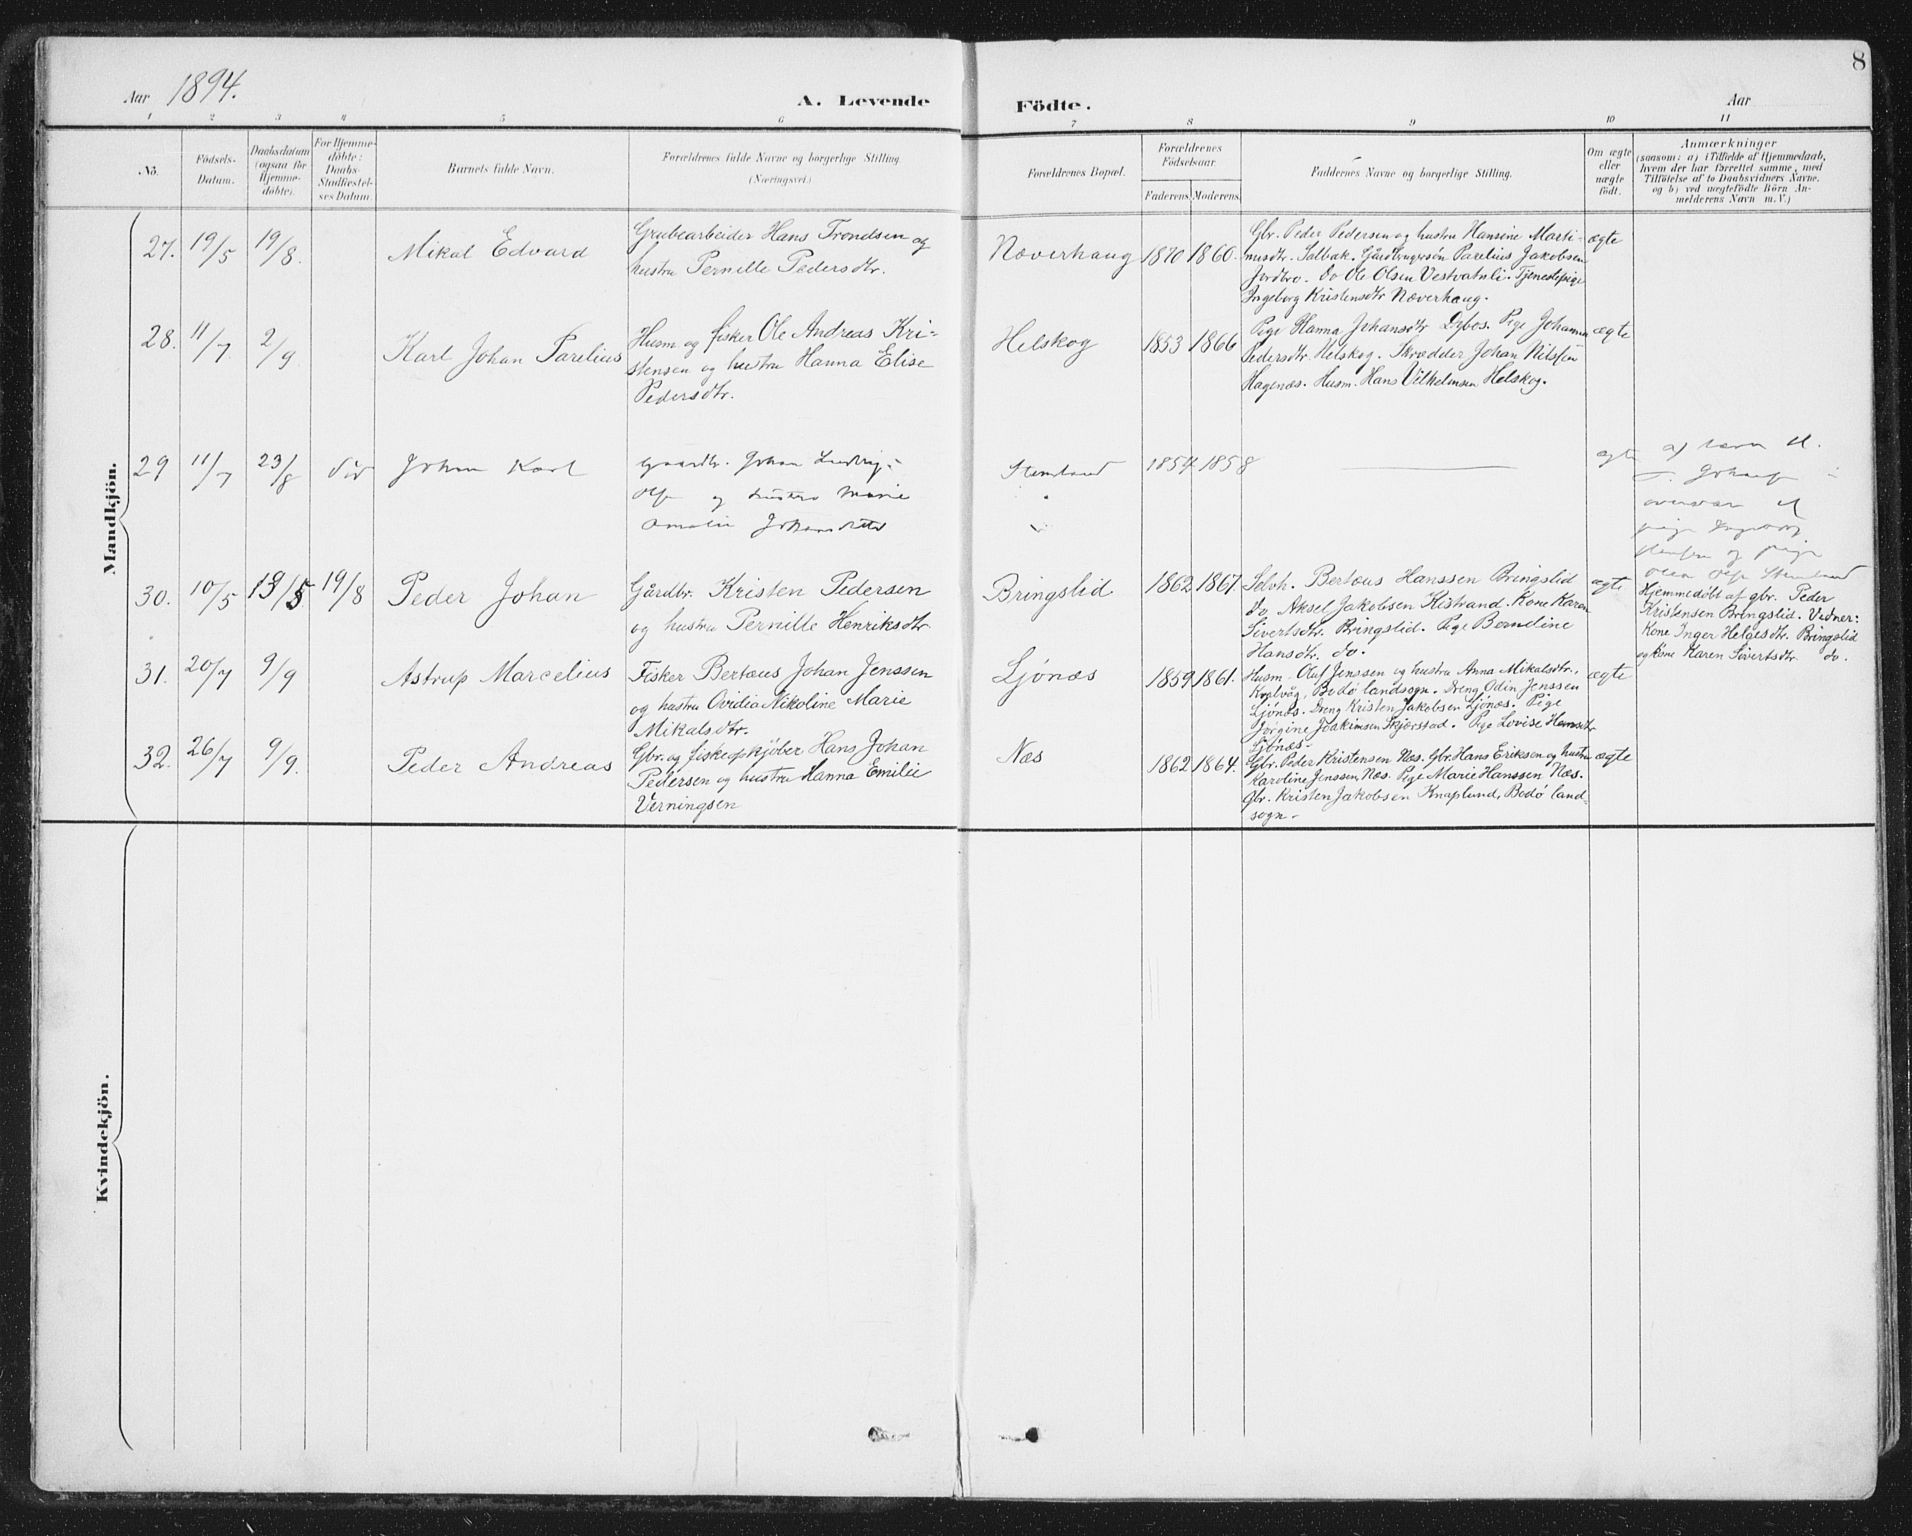 Aar 1894.
A. Levende Födte.
Aar
8
1 2 3 4 5 6 7 8 9 10 11
No.
Födsels-Datum.
Daabsdatum (ogsaa för Hjemme-döbte).
For Hjemme-döbte: Daabs-Stadfæstel-ses Datum.
Barnets fulde Navn.
Forældrenes fulde Navne og borgerlige Stilling.
(Næringsvei.)
Forældrenes Bopæl.
Forældrenes Födselsaar.
Faderens. Moderens.
Faddernes Navne og borgerlige Stilling.
Om ægte eller uægte födt.
Anmærkninger
(saasom: a) i Tilfælde af Hjemmedaab,
hvem der har forrettet samme, med
Tilföielse af to Daabsvidners Navne.
og b) ved uægtefödte Börn An-
melderens Navn m. V.)
Mandkjön.
27. 19/5 19/8. Mikal Edvard
Grubearbeider Hans Trondsen og
hustru Pernille Pedersdtr.
Næverhaug 1870 1860.
Gbr. Peder Pedersen og hustru Hansine Marti-
nusdtr. Salbak. Gårdbrugersøn Parelius Jakobsen
Jordbro. Do Ole Olsen Vestvatnli. Tjenestepige
Ingeborg Kristensdtr Næverhaug.
ægte
28. 11/7 2/9. Karl Johan Parelius
Husm og fisker Ole Andreas Kri-
stensen og hustru Hanna Elise
Pedersdtr.
Helskog 1853 1866
Pige Hanna Johansdtr Dybos. Pige Johanna
Pedersdtr. Helskog. Skrædder Johan Nilssen
Hagenæs. Husm. Hans Vilhelmsen Helskog.
ægte
29 11/7 23/8 Johan Karl
Gaardbr. Johan Ludvig
Ols og hustru Marie
Amalie Johansdatter
1854 1858
ægte
og pige
30. 10/5 13/5 19/8 Peder Johan
Gårdbr. Kristen Pedersen
og hustru Pernille Henriksdtr
Bringslid 1862 1867.
Selvh. Bertæus Hanssen Bringslid
Do Aksel Jakobsen Kistrand. Kone Karen
Sivertsdtr. Bringslid. Pige Berndine
Hansdtr. do.
ægte
Hjemmedöbt af gbr. Peder
Kristensen Bringslid. Vidner:
Kone Inger Helgesdtr. Bringslid
og kone Karen Sivertsdtr do.
31. 20/7 9/9 Astrup Marcelius
Fisker Bertæus Johan Jenssen
og hustru Ovidia Nikoline Marie
Mikalsdtr.
Ljönæs 1859 1861.
Husm. Oluf Jenssen og hustru Anna Mikalsdtr.
Kvalvåg, Bodø landsogn. Dreng Odin Jenssen
Ljönæs. Dreng Kristen Jakobsen Ljönæs. Pige
Jørgine Joakimsen Skjerstad. Pige Lovise Hansdtr
Ljönæs.
ægte
32. 26/7 9/9. Peder Andreas
Gbr. og fiskeopkjøber Hans Johan
Pedersen og hustru Hanna Emilie
Verningsen
Næs 1862 1864.
Gbr. Peder Kristensen Næs. Gbr. Hans Eriksen og hustru
Karoline Jenssen, Næs. Pige Marie Hanssen Næs.
Gbr. Kristen Jakobsen Knaplund, Bodø land-
sogn.
ægte
Kvindekjön.